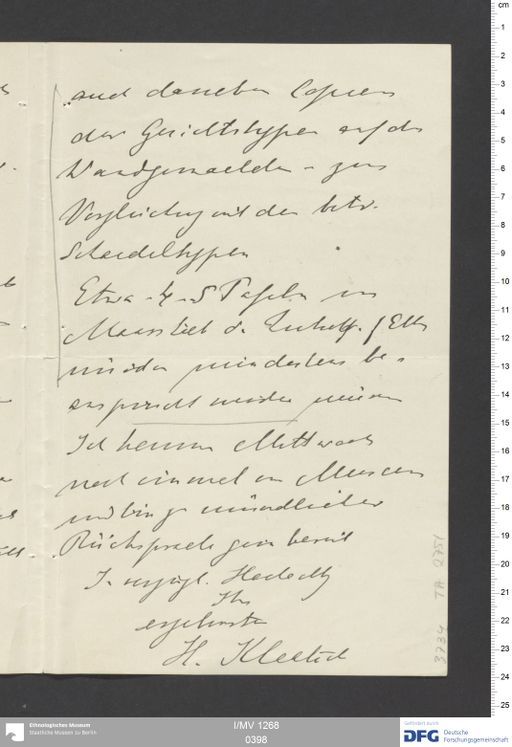 und daneben Copien
der Gesichtstypen auf den
Wandgemaelden – zur
Vergleichung mit den betr.
Schaedeltypen
Etwa 4–5 Tafeln im
Maasstab d. Zeitschr. f. Eth.
würden mindestens be-
ansprucht werden müssen
Ich komme Mittwoch
noch einmal in Museum
und bin zu mündlicher
Rücksprache gern bereit
In vorzügl. Hochachtg
Ihr
ergebenster
H. Klaatsch
3734 TA 2751
Ethnologisches Museum
Staatliche Museen zu Berlin
I/MV 1268
0398
Gefördert durch
DFG Deutsche
Forschungsgemeinschaft
cm
1
2
3
4
5
6
7
8
9
10
11
12
13
14
15
16
17
18
19
20
21
22
23
24
25